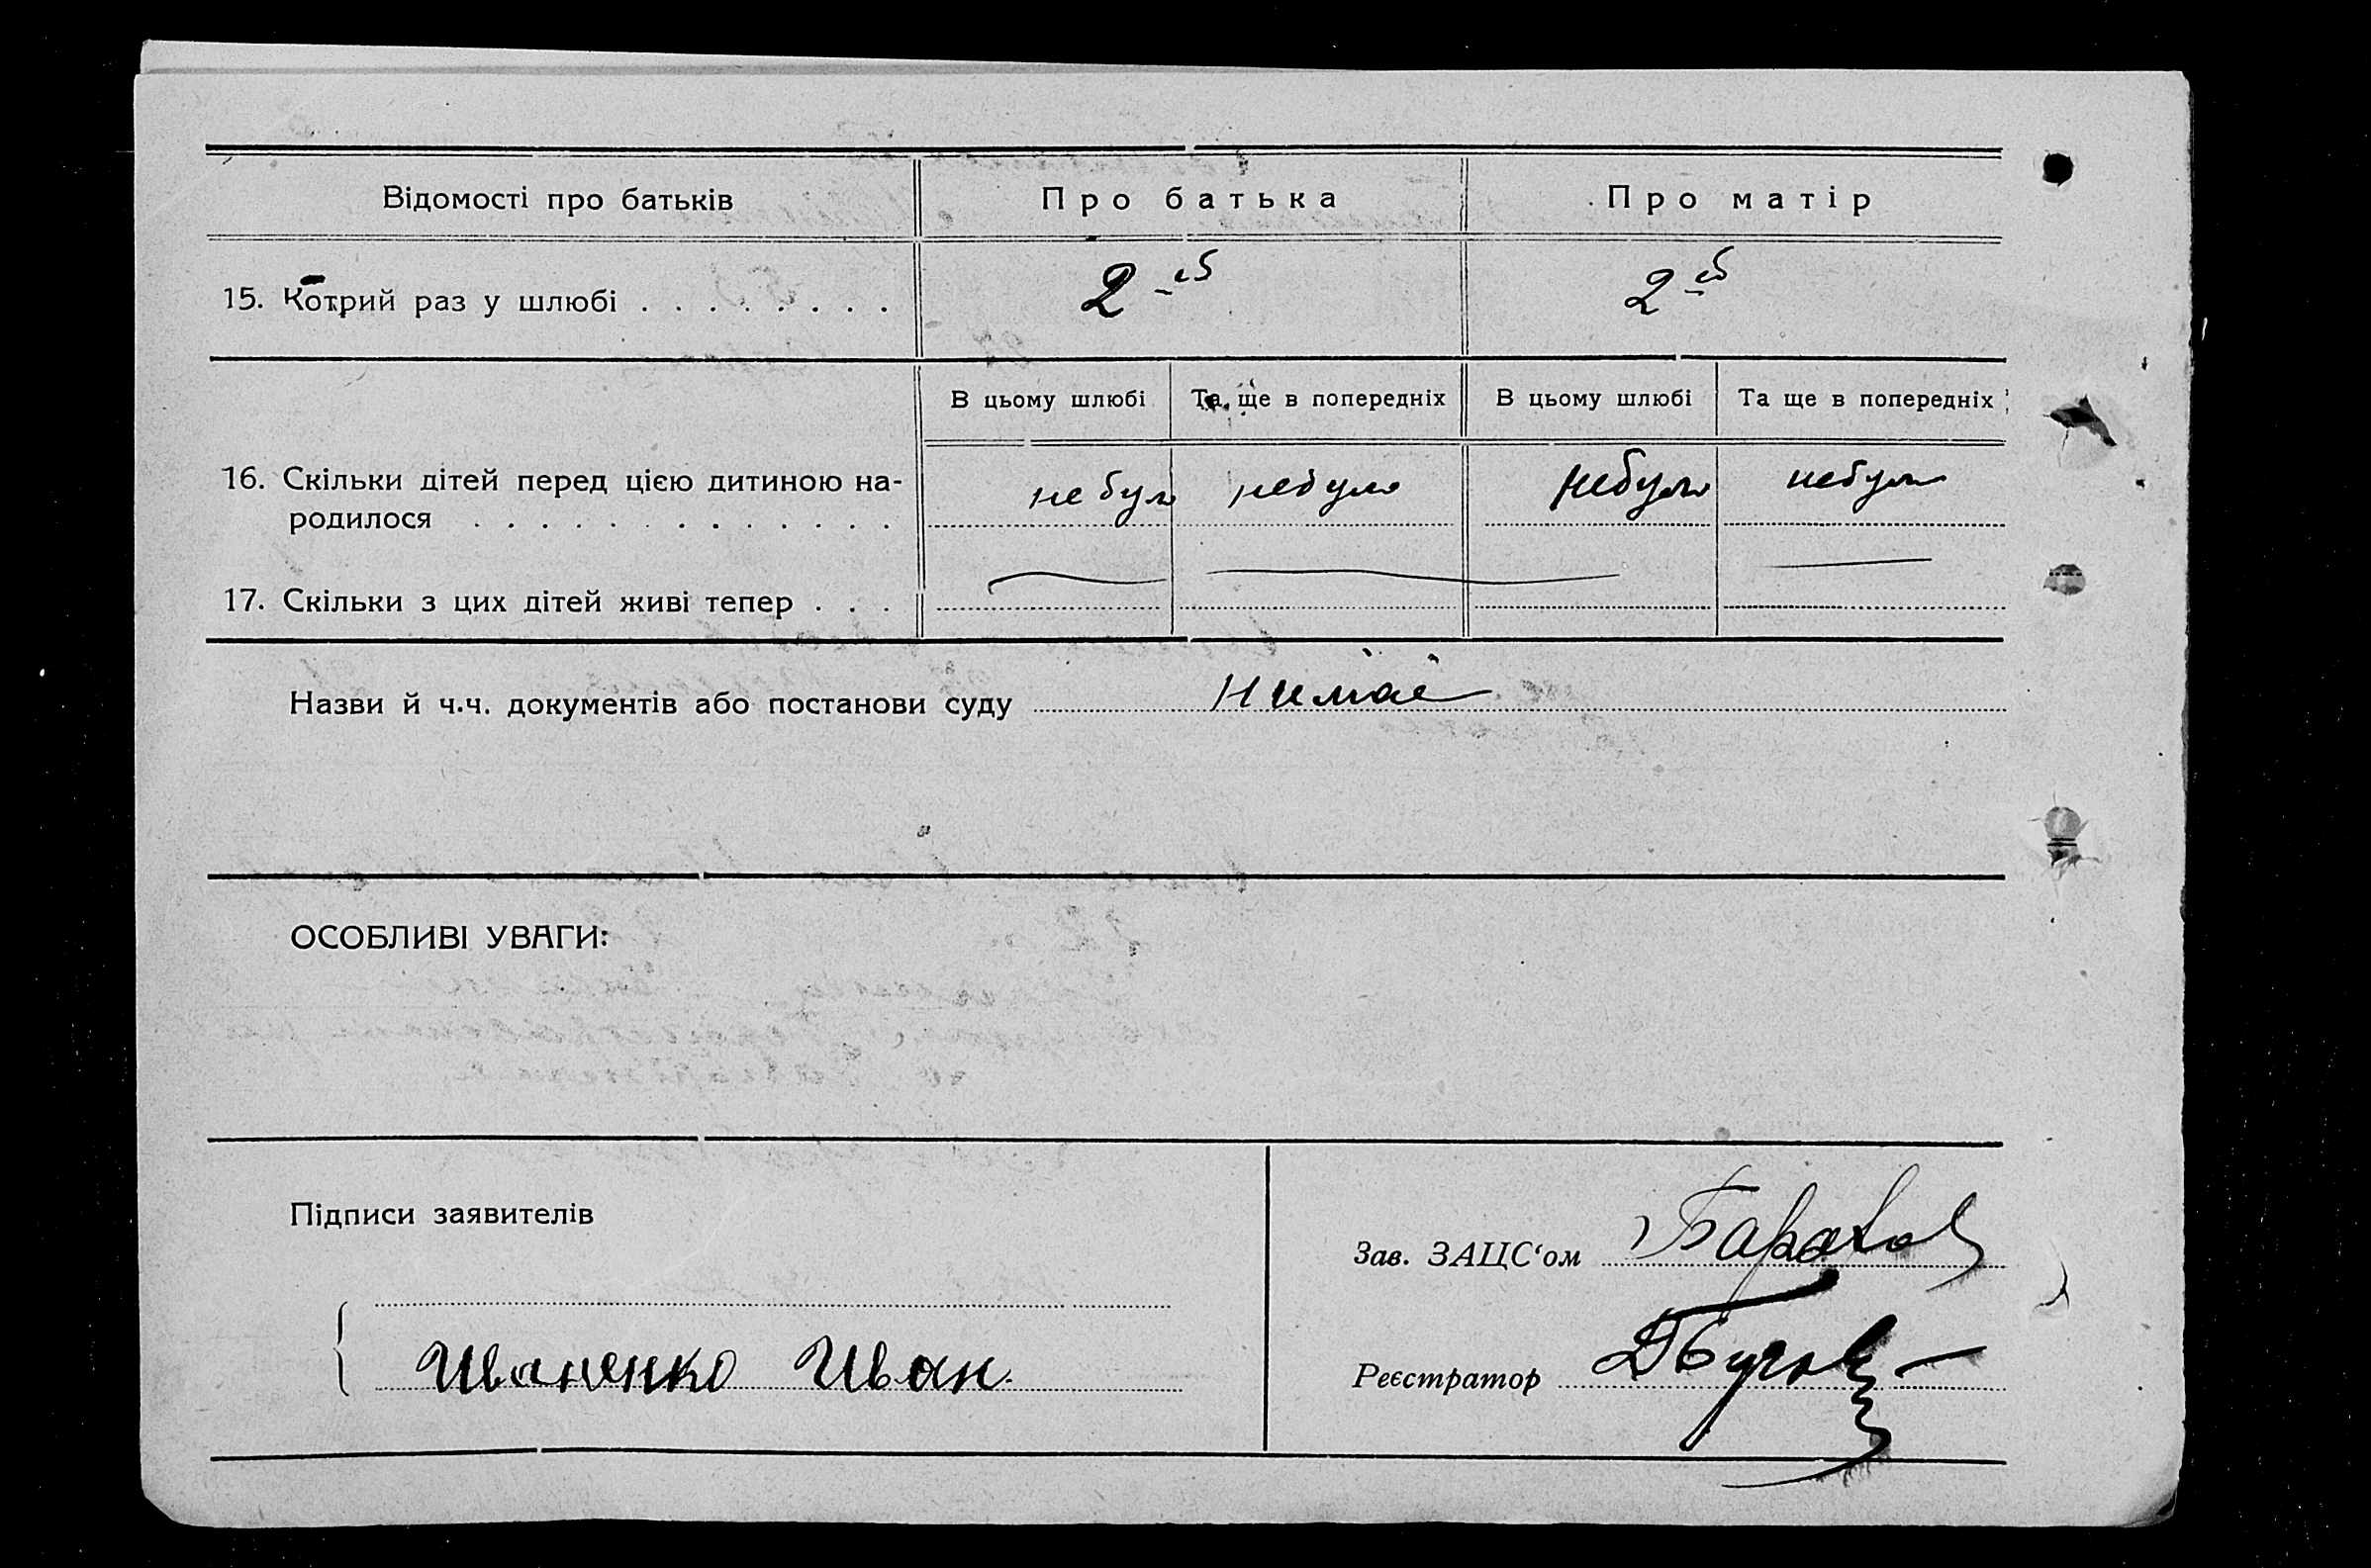 Відомості про батьків
Про батька
Про матір
15. Котрий раз у шлюбі . . . . . . . .
2-
2
В цьому шлюбі
Та ще в попередніх
В цьому шлюбі
Та ще в попередніх
16. Скільки дітей перед цією дитиною на-
не було
небуло
небуло
небуло
родилося . . . . . . . . . . . . .
17. Скільки з цих дітей живі тепер . . .
Назви й ч.ч. документів або постанови суду
Нимае
ОСОБЛИВІ УВАГИ:
Підписи заявителів
Зав. ЗАЦС‘ом
Иваненко Иван.
Реєстратор